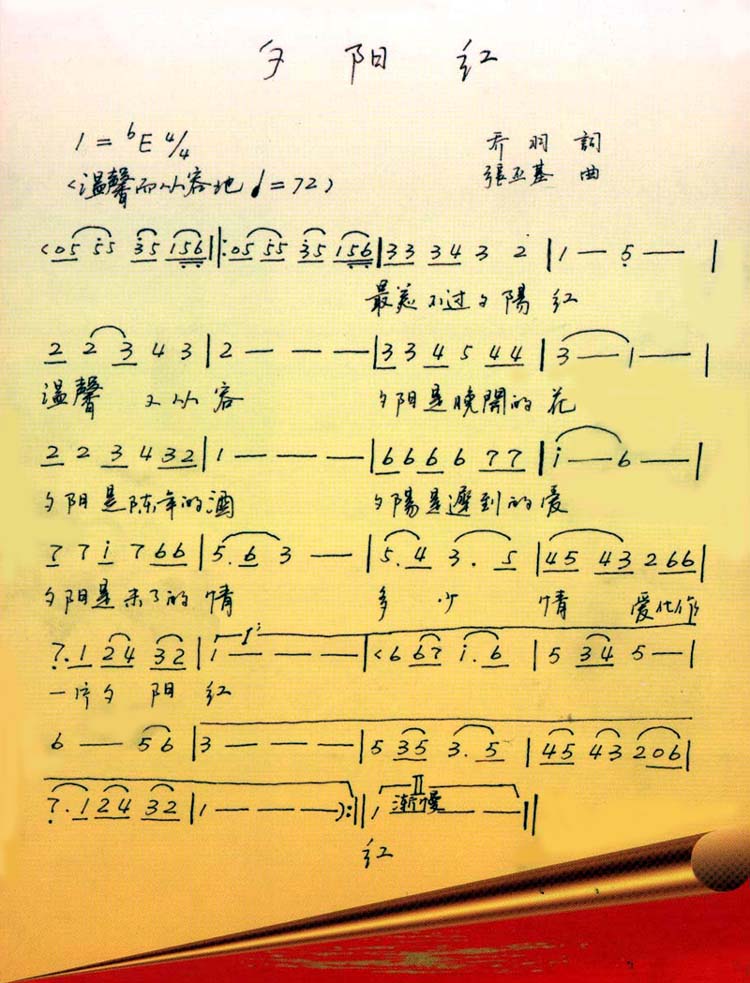 夕 阳 红
1=♭E 4/4
乔羽 詞
(温馨而从容地 ♩=72)
張丕基 曲
(05 55 35 156 ‖: 05 55 35 156 | 33 34 3 2 | 1 — 5 — |
最美不过夕陽 红
2 2 3 4 3 | 2 — — — | 3 3 4 5 44 | 3 — 1 — |
温馨 又从容 夕阳是晚開的花
2 2 3 4 32 | 1 — — — | 6 6 6 6 77 | i — 6 — |
夕阳是陈年的酒 夕陽是遲到的爱
7 7 i 7 66 | 5. 6 3 — | 5. 4 3. 5 | 45 43 2 66 |
夕阳是未了的情 多少 情 爱化作
7. 1 24 32 | i — — — | (6 67 i. 6 | 5 34 5 — |
一片夕 阳 红
6 — 56 | 3 — — — | 5 35 3. 5 | 45 43 206 |
7. 1 24 32 | 1 — — — ) :‖ 1 — — — ‖
II
渐慢
红